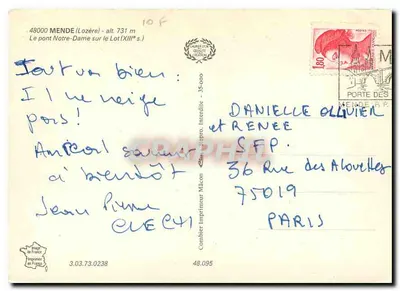 10 F
48000 MENDE (Lozère) - alt. 731 m
Le pont Notre-Dame sur le Lot (XIIIe s.)
1,80
M
PORTE DES
Tout va bien :
Il ne neige
pas !
à bientôt
Jean Pierre
DANIELLE OLLIVIER
et RENEE
SFP.
36 Rue des Alouettes
75019
PARIS
Combier Imprimeur Mâcon
Imprimé
en France
3.03.73.0238
48.095